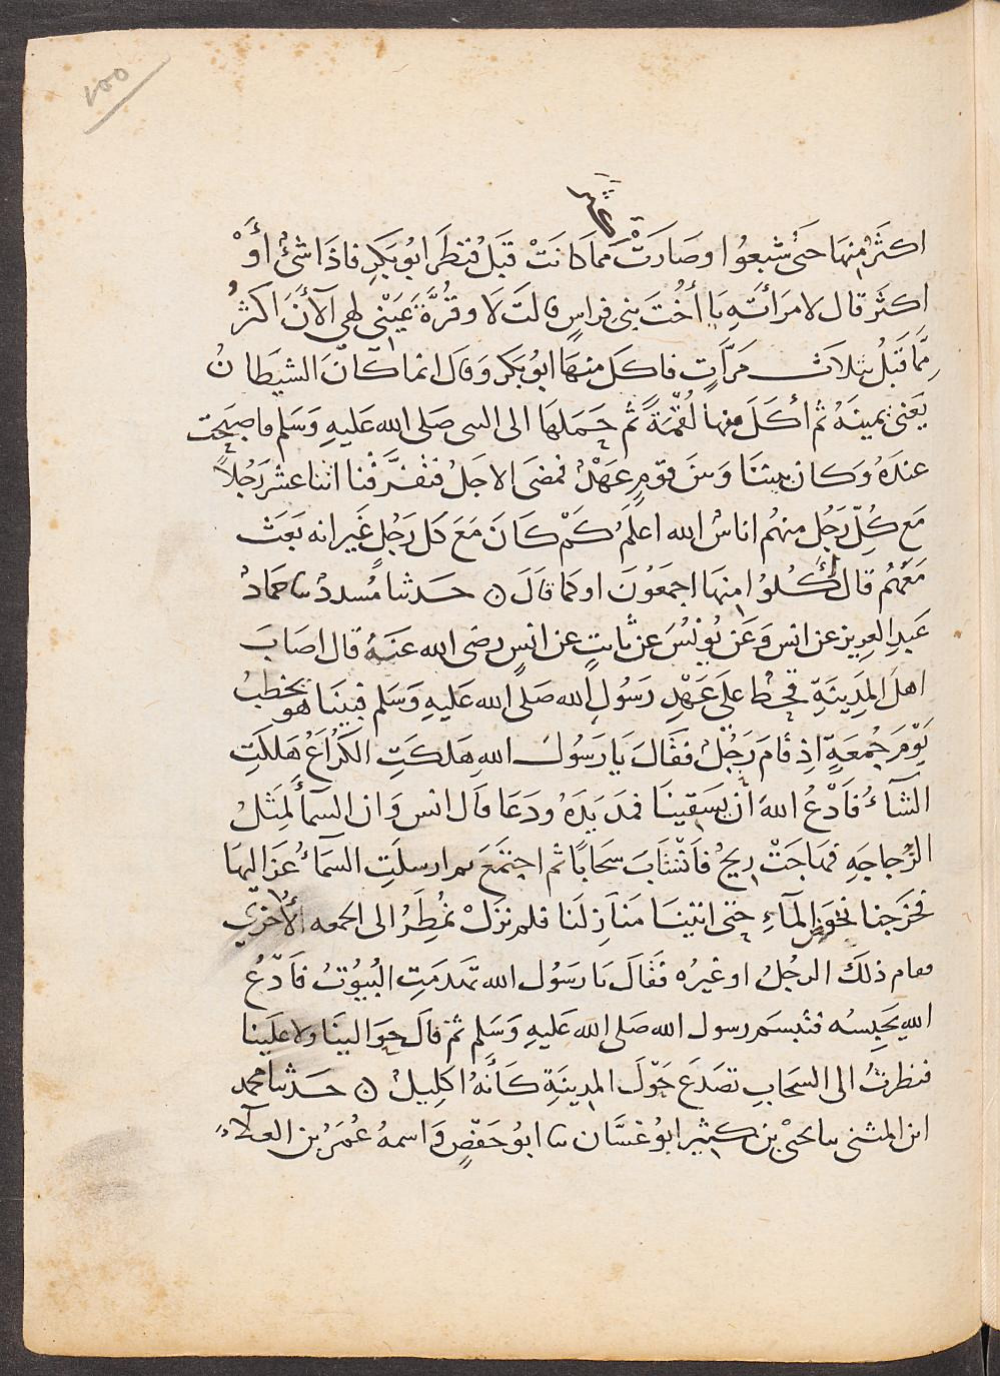 ١٥٥
اكثَرُ منِهَا حَتَّى شبعوُا وصَارَتْ مما كانَتْ قبَلُ فنظَرَ ابُو بَكرٍ فاذَا شَئٌ أوْ
اكثَر قال لامرَأتَهِ يَا أخُتَ بنىِ فراسٍ قالتَ لَا وقُرَّةَ عَيَنىِ لهَي الآنَ اكثَرُ
مِمَّا قبَلُ بثلاَث مَرَّاتٍ فاكلَ منهَا ابوُ بَكر وَقال انما كانَ الشيطانُ
يَعنى يمينَهُ ثم أكَلَ منها لُقمَةً ثم حَمَلهَا الى النبى صَلى الله عَليهِ وَسَلم فاصبَحَت
عندَهُ وَكان بيننَا وبَينَ قوَمٍ عَهدٌ فمضَى الاجَلُ فتفرَّقْنا اثنا عشر رَجُلاً
مَع كُلّ رَجُل منهُم اناسٌ الله اعلَمُ كَمْ كانَ مَعَ كل رَجُلٍ غَير انه بَعَث
مَعهُم قال أكَلُوا منهَا اجمعَوُنَ او كما قالَ ٥ حَدثنا مُسددٌ ثنا حمادٌ
عَبدِ العزِيز عن انس وَعَن يوُنسَُ عن ثابتٍ عن انسٍ رضى الله عنَهُ قال اصَابَ
اهلَ المدَينَةِ قحطٌ علَى عَهْدِ رَسُولِ الله صَلى الله عَليهِ وَسَلم فبَينَا هو يخطبُ
يَوْمَ جُمعَةٍ اذِ قامَ رَجُلٌ فقَالَ يَا رَسُولَ اللهِ هَلكتِ الكُرَاعُ هَلكَتِ
الشآءُ فَادْعُ اللهَ أن يسَقينَا فمدَ يَدَهُ ودَعَا قال انس وَان السمآءَ لَمثَلُ
الزُجاجَةِ فهَاجَتْ ريحٌ فاَنْشَأتَ سَحَابًا ثم اجتمَعَ ثم ارسلَتِ السمَآءُ عزَاليهَا
فخرَجنا نخوض المآءِ حتى اتينَا مَنازلنَا فلم نزَلْ نمُطَرُ الى الجمعه الأخرَى
فقام ذلَك الرجُلُ او غيرُه فقَالَ يا رسَوُل الله تهدمَتِ البُيوُتُ فادْعُ
الله يَحبِسه فتبسَم رسول الله صَلى الله عَليهِ وَسَلم ثم قالَ حوَالينَا ولا علَينا
فنظرتُ الى السحَاب تصَدعَ حَوْلَ المدينَةِ كَأنَهُ اكلِيلٌ ٥ حَدثنا محمد
ابن المثنى ثنا يحيىْ بن كثيرٍ ابوُ غسَّان ثنا ابوُ حَفصٍ وَاسمهُ عُمَرُ بن العلآءِ